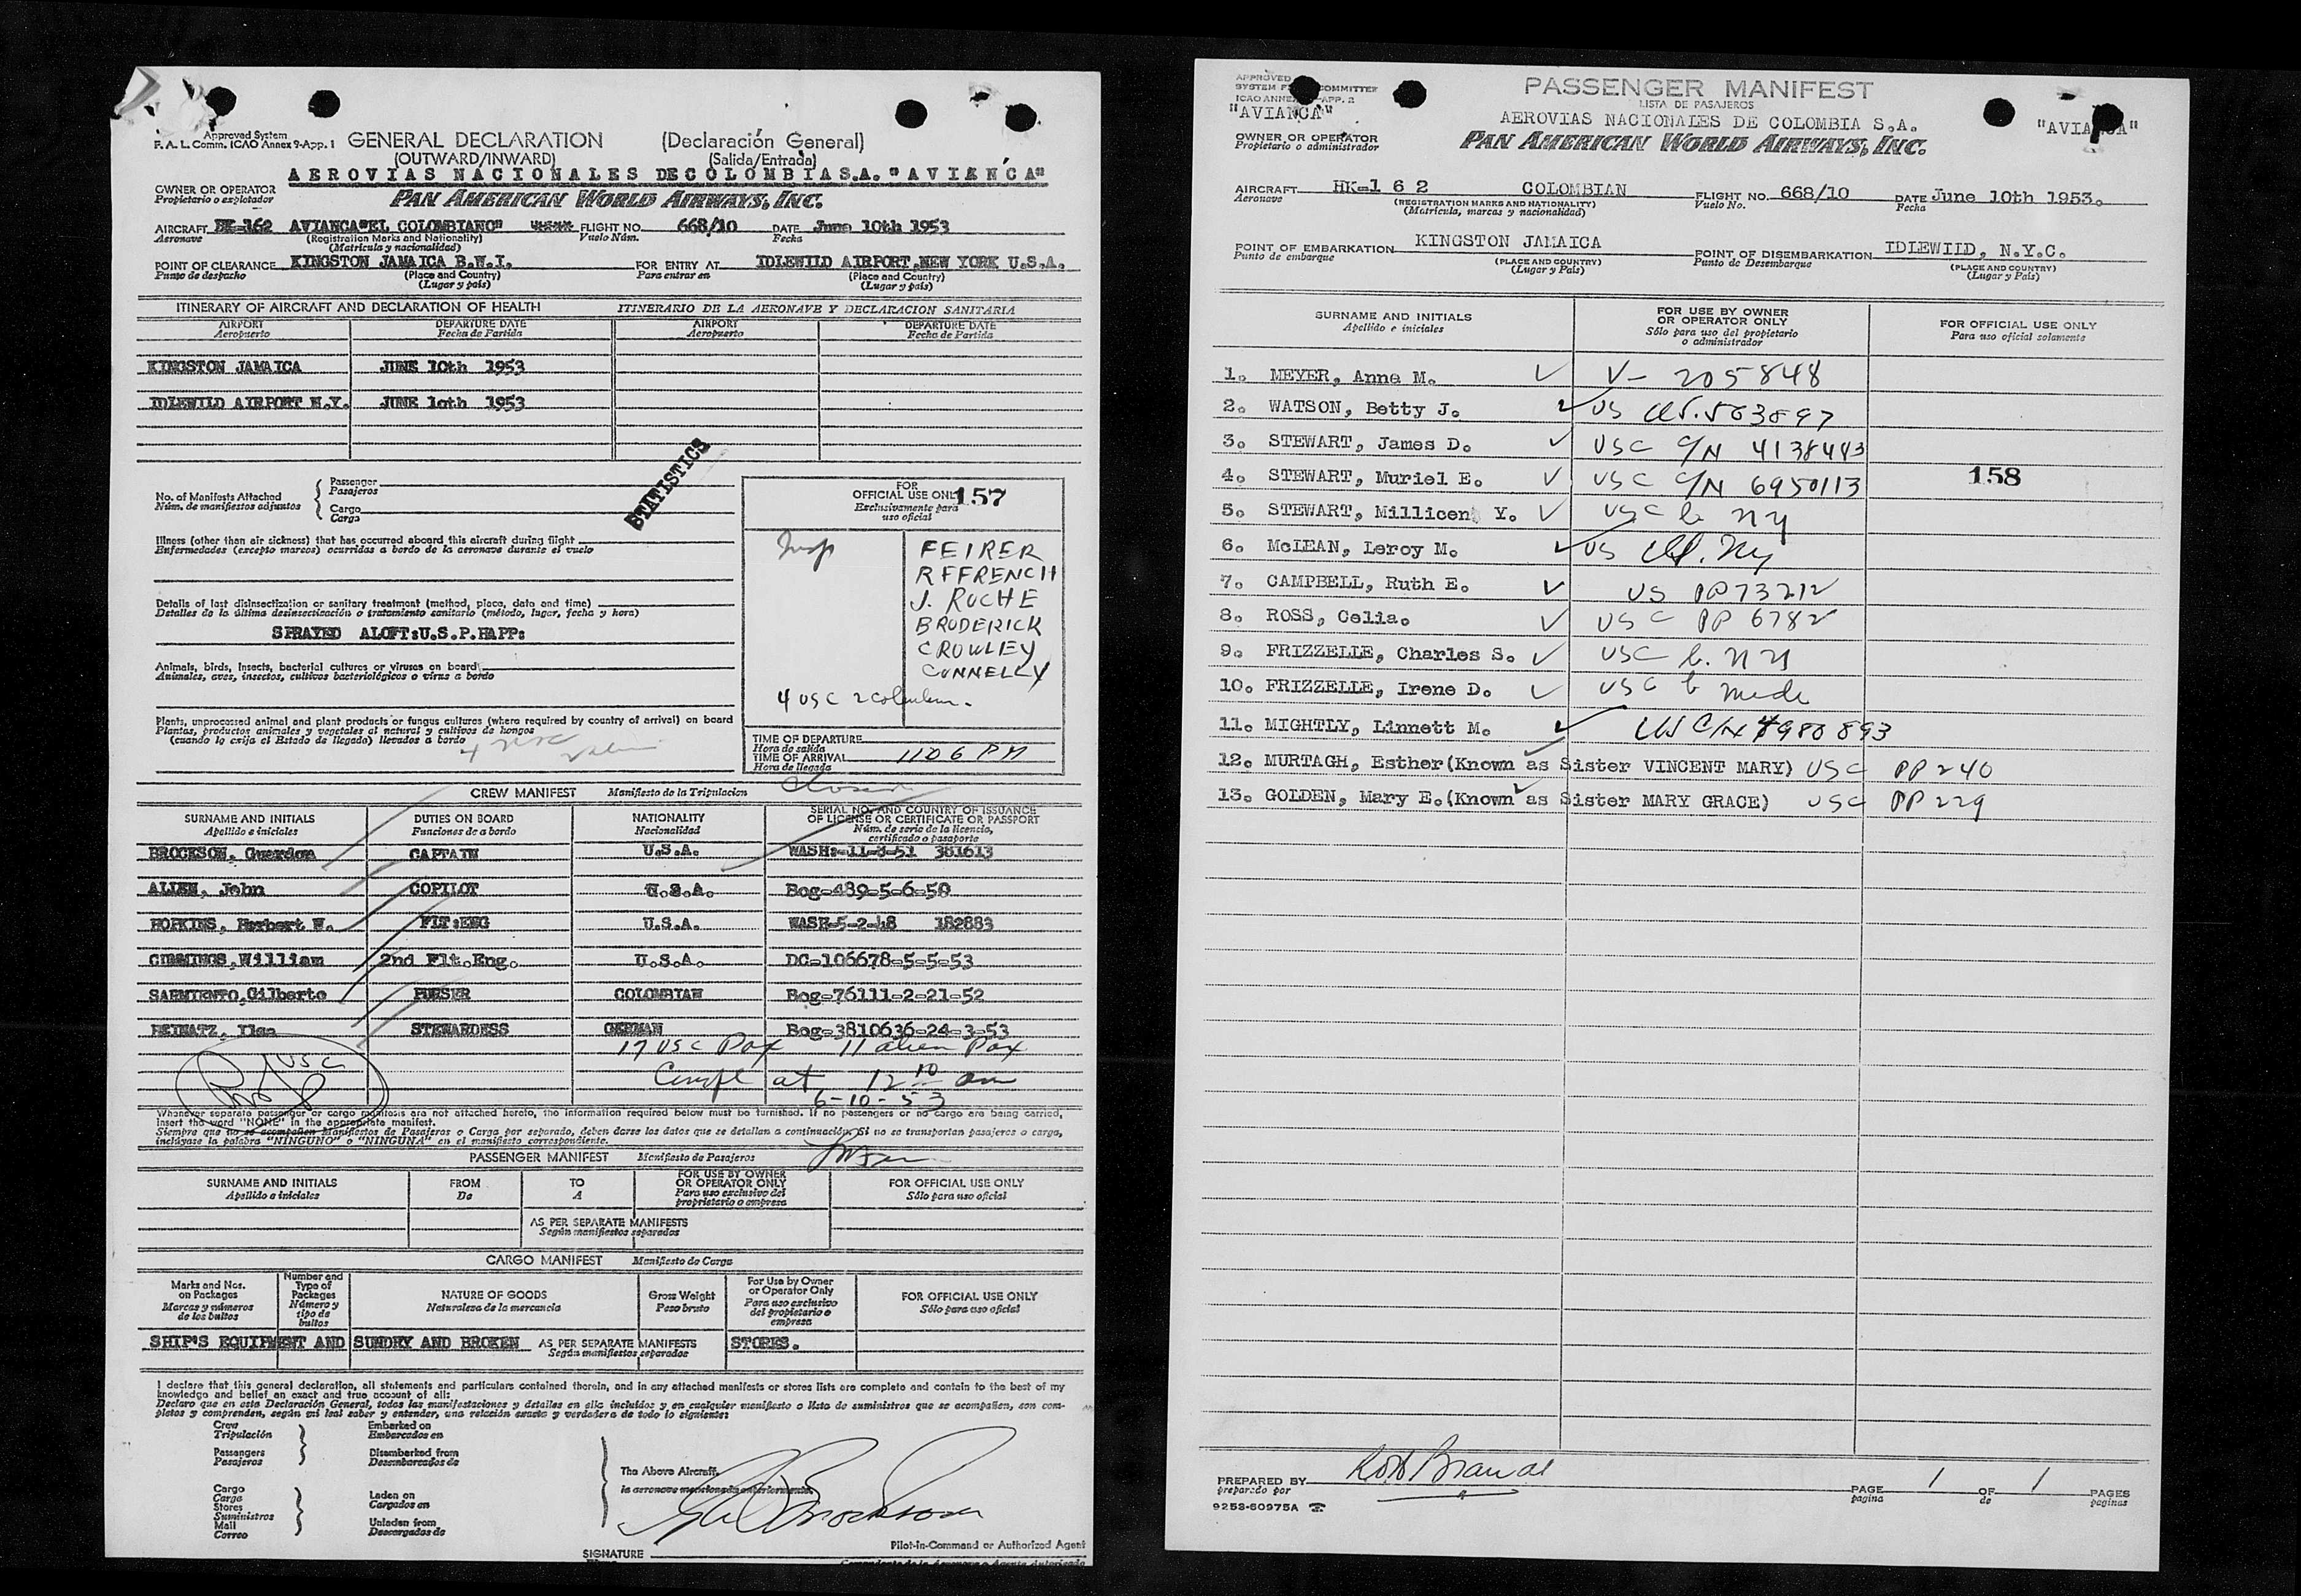 Approved System
F. A. L. Comm. ICAO Annex 9-App. 1
GENERAL DECLARATION (Declaración General)
(OUTWARD/INWARD) (Salida/Entrada)
AEROVIAS NACIONALES DE COLOMBIA S.A. "AVIANCA"
OWNER OR OPERATOR
Propietario o explotador
PAN AMERICAN WORLD AIRWAYS, INC.
AIRCRAFT HK-162 AVIANCA"EL COLOMBIANO" FLIGHT NO. 668/10 DATE June 10th 1953
Aeronave (Registration Marks and Nationality) Vuelo Núm. Fecha
(Matrícula y nacionalidad)
POINT OF CLEARANCE KINGSTON JAMAICA B.W.I. FOR ENTRY AT IDLEWILD AIRPORT, NEW YORK U.S.A.
Punto de despacho (Place and Country) Para entrar en (Place and Country)
(Lugar y país) (Lugar y país)
ITINERARY OF AIRCRAFT AND DECLARATION OF HEALTH ITINERARIO DE LA AERONAVE Y DECLARACION SANITARIA
AIRPORT DEPARTURE DATE AIRPORT DEPARTURE DATE
Aeropuerto Fecha de Partida Aeropuerto Fecha de Partida
KINGSTON JAMAICA JUNE 10th 1953
IDLEWILD AIRPORT N.Y. JUNE 10th 1953
STATISTICS
No. of Manifests Attached
Núm. de manifiestos adjuntos
Passenger
Pasajeros
Cargo
Carga
Illness (other than air sickness) that has occurred aboard this aircraft during flight
Enfermedades (excepto mareos) ocurridas a bordo de la aeronave durante el vuelo
Details of last disinsectization or sanitary treatment (method, place, date and time)
Detalles de la última desinsectización o tratamiento sanitario (método, lugar, fecha y hora)
SPRAYED ALOFT:U.S.P.HAPP:
Animals, birds, insects, bacterial cultures or viruses on board
Animales, aves, insectos, cultivos bacteriológicos o virus a bordo
Plants, unprocessed animal and plant products or fungus cultures (where required by country of arrival) on board
Plantas, productos animales y vegetales al natural y cultivos de hongos
(cuando lo exija el Estado de llegada) llevados a bordo
FOR
OFFICIAL USE ONLY 157
Exclusivamente para
uso oficial
Insp
FEIRER
RFFRENCH
J. ROCHE
BRODERICK
CROWLEY
CONNELLY
4 USC 2
TIME OF DEPARTURE
Hora de salida
TIME OF ARRIVAL 1106 PM
Hora de llegada
CREW MANIFEST Manifiesto de la Tripulacion
SURNAME AND INITIALS DUTIES ON BOARD NATIONALITY SERIAL NO. AND COUNTRY OF ISSUANCE
OF LICENSE OR CERTIFICATE OR PASSPORT
Apellido e iniciales Funciones de a bordo Nacionalidad Núm. de serie de la licencia,
certificado o pasaporte
BROCKSON, Guerdon CAPTAIN U.S.A. WASH:-11-8-51 381613
ALLEN, John COPILOT U.S.A. Bog-489-5-6-50
HOPKINS, Herbert W. FLT:ENG U.S.A. WASH-5-2-48 182883
CUMMINGS, William 2nd Flt.Eng. U.S.A. DC-106678-5-5-53
SARMIENTO, Gilberto PURSER COLOMBIAN Bog-76111-2-21-52
HEINATZ, Ilsa STEWARDESS GERMAN Bog-3810636-24-3-53
17 USC Pax 11 alien Pax
USC
Compl at 12 10 am
6-10-53
Whenever separate passenger or cargo manifests are not attached hereto, the information required below must be furnished. If no passengers or no cargo are being carried,
insert the word "NONE" in the appropriate manifest.
Siempre que no se acompañen Manifiestos de Pasajeros o Carga por separado, deben darse los datos que se detallan a continuación. Si no se transportan pasajeros o carga,
inclúyase la palabra "NINGUNO" o "NINGUNA" en el manifiesto correspondiente.
PASSENGER MANIFEST Manifiesto de Pasajeros
SURNAME AND INITIALS FROM TO FOR USE BY OWNER OR OPERATOR ONLY FOR OFFICIAL USE ONLY
Apellido e iniciales De A Para uso exclusivo del propietario o empresa Sólo para uso oficial
AS PER SEPARATE MANIFESTS
Según manifiestos separados
CARGO MANIFEST Manifiesto de Carga
Marks and Nos. on Packages Number and Type of Packages NATURE OF GOODS Gross Weight For Use by Owner or Operator Only FOR OFFICIAL USE ONLY
Marcas y números de los bultos Número y tipo de bultos Naturaleza de la mercancia Peso bruto Para uso exclusivo del propietario o empresa Sólo para uso oficial
SHIP'S EQUIPMENT AND SUNDRY AND BROKEN AS PER SEPARATE MANIFESTS STORES.
Según manifiestos separados
I declare that this general declaration, all statements and particulars contained therein, and in any attached manifests or stores lists are complete and contain to the best of my
knowledge and belief an exact and true account of all:
Declaro que en esta Declaración General, todas las manifestaciones y detalles en ella incluidos y en cualquier manifiesto o lista de suministros que se acompañen, son com-
pletos y comprenden, según mi leal saber y entender, una relación exacta y verdadera de todo lo siguiente:
Crew Embarked on
Tripulación Embarcados en
Passengers Disembarked from
Pasajeros Desembarcados de
The Above Aircraft.
la aeronave mencionada anteriormente.
Cargo Laden on
Carga Cargados en
Stores
Suministros
Mail Unladen from
Correo Descargados de
SIGNATURE
Pilot-in-Command or Authorized Agent
Comandante de la Aeronave o Agente Autorizado
APPROVED
SYSTEM COMMITTEE
ICAO ANNEX APP. 2
"AVIANCA"
PASSENGER MANIFEST
LISTA DE PASAJEROS
AEROVIAS NACIONALES DE COLOMBIA S.A. "AVIANCA"
OWNER OR OPERATOR
Propietario o administrador
PAN AMERICAN WORLD AIRWAYS, INC.
AIRCRAFT HK-1 6 2 COLOMBIAN FLIGHT NO. 668/10 DATE June 10th 1953.
Aeronave (REGISTRATION MARKS AND NATIONALITY) Vuelo No. Fecha
(Matrícula, marcas y nacionalidad)
POINT OF EMBARKATION KINGSTON JAMAICA POINT OF DISEMBARKATION IDLEWILD, N.Y.C.
Punto de embarque (PLACE AND COUNTRY) Punto de Desembarque (PLACE AND COUNTRY)
(Lugar y País) (Lugar y País)
SURNAME AND INITIALS FOR USE BY OWNER OR OPERATOR ONLY FOR OFFICIAL USE ONLY
Apellido e iniciales Sólo para uso del propietario o administrador Para uso oficial solamente
1. MEYER, Anne M. V- 205848
2. WATSON, Betty J. US
3. STEWART, James D. USC C/N 4138483
4. STEWART, Muriel E. USC C/N 6950113 158
5. STEWART, Millicent Y. USC b NY
6. McLEAN, Leroy M. US NY
7. CAMPBELL, Ruth E. US PP73212
8. ROSS, Celia. USC PP 6782
9. FRIZZELLE, Charles S. USC b. NY
10. FRIZZELLE, Irene D. USC b
11. MIGHTLY, Linnett M. US C/N 4980893
12. MURTAGH, Esther(Known as Sister VINCENT MARY) USC PP 240
13. GOLDEN, Mary E.(Known as Sister MARY GRACE) USC PP 229
PREPARED BY
preparado por
PAGE 1 OF 1 PAGES
pagina de paginas
9253-60975A